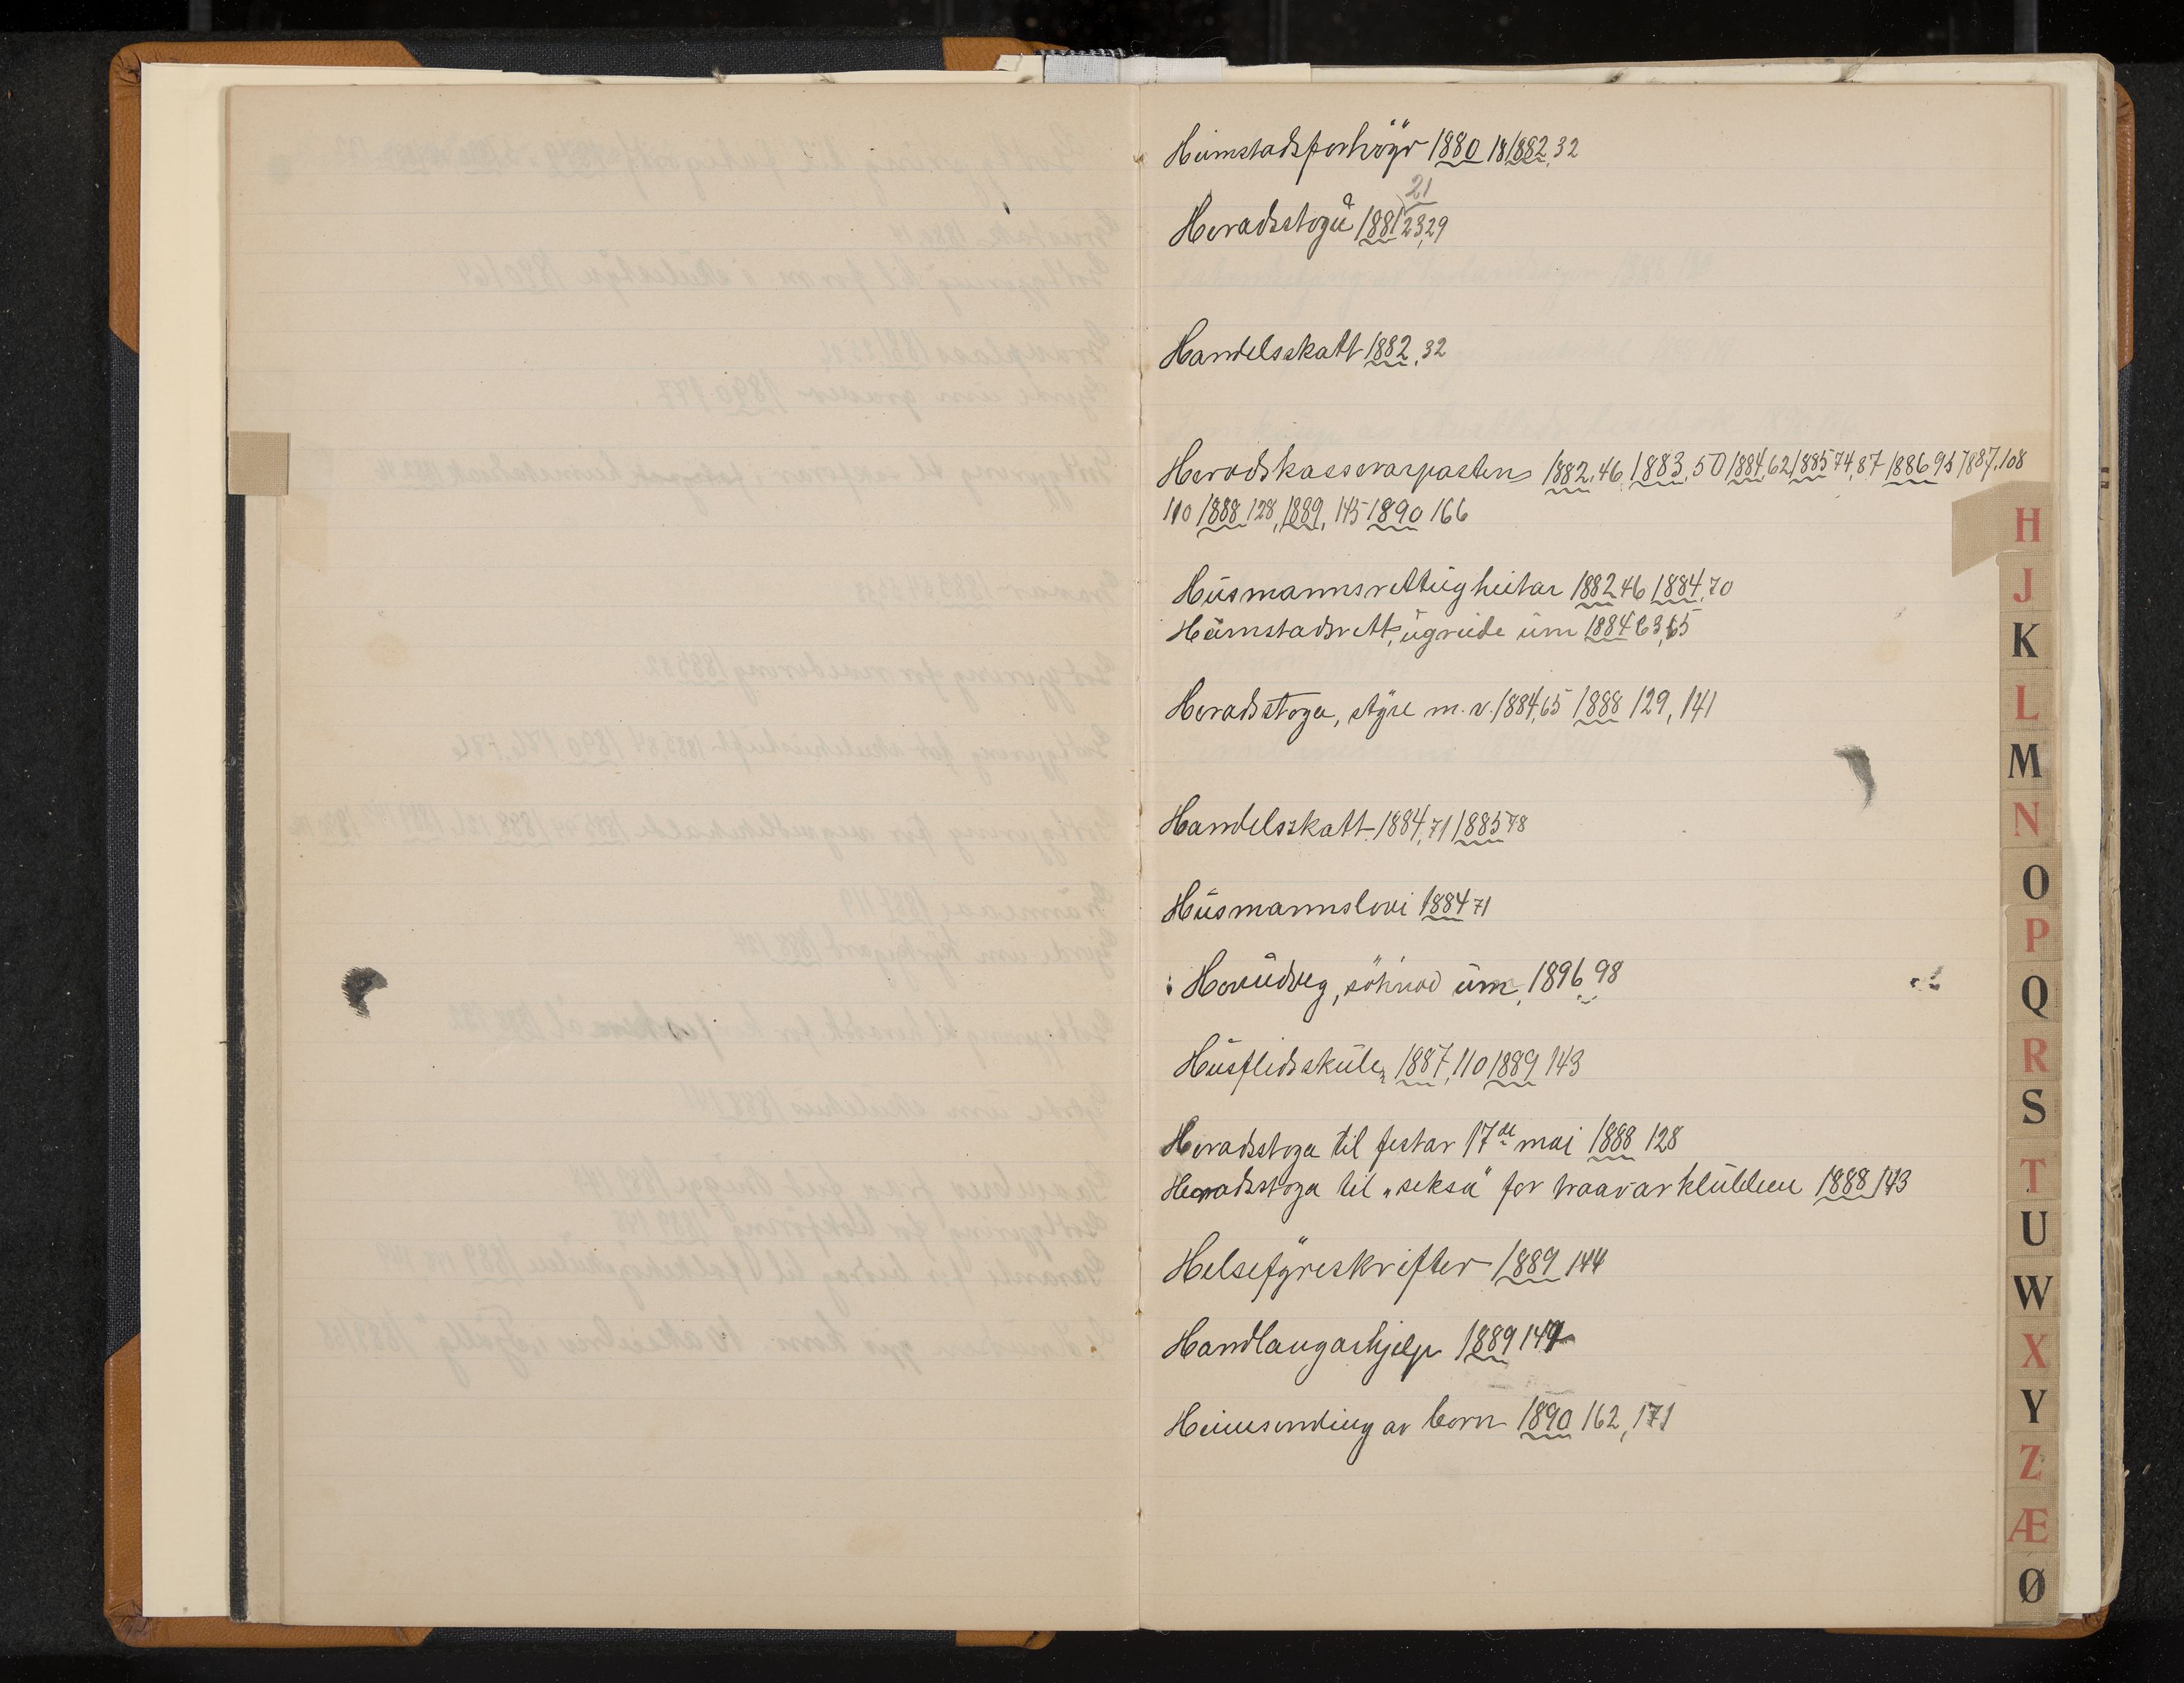 Heimstadsforhøyr 1880 18 1882, 32
21
Heradsstogå 1881 23,29
Handelsskatt 1882, 32
Heradskasserarposten 1882, 46, 1883, 50 1884, 62 1885 74, 87 1886 95 1887, 108
110 1888 128, 1889, 145 1890 166
Húsmannsrettúgheitar 1882 46 1884, 70
Heimstadsrett, úgreide úm 1884 63, 65
Heradsstoga, stÿre m. v. 1884, 65 1888 129, 141
Handelsskatt 1884, 71 1885 78
Húsmannslovi 1884 71
Hovúdveg, söknad úm, 1896 98
Húsflidsskúle, 1887, 110 1889 143
Heradsstoga til festar 17de mai 1888 128
Heradsstoga til „seksa" for travarklúbben 1888 143
Helsefÿreskrifter 1889 144
Handlangarhjelp 1889 149
Heimsending av born 1890 162, 171
H
J
K
L
M
N
O
P
Q
R
S
T
U
W
X
Y
Z
Æ
Ø